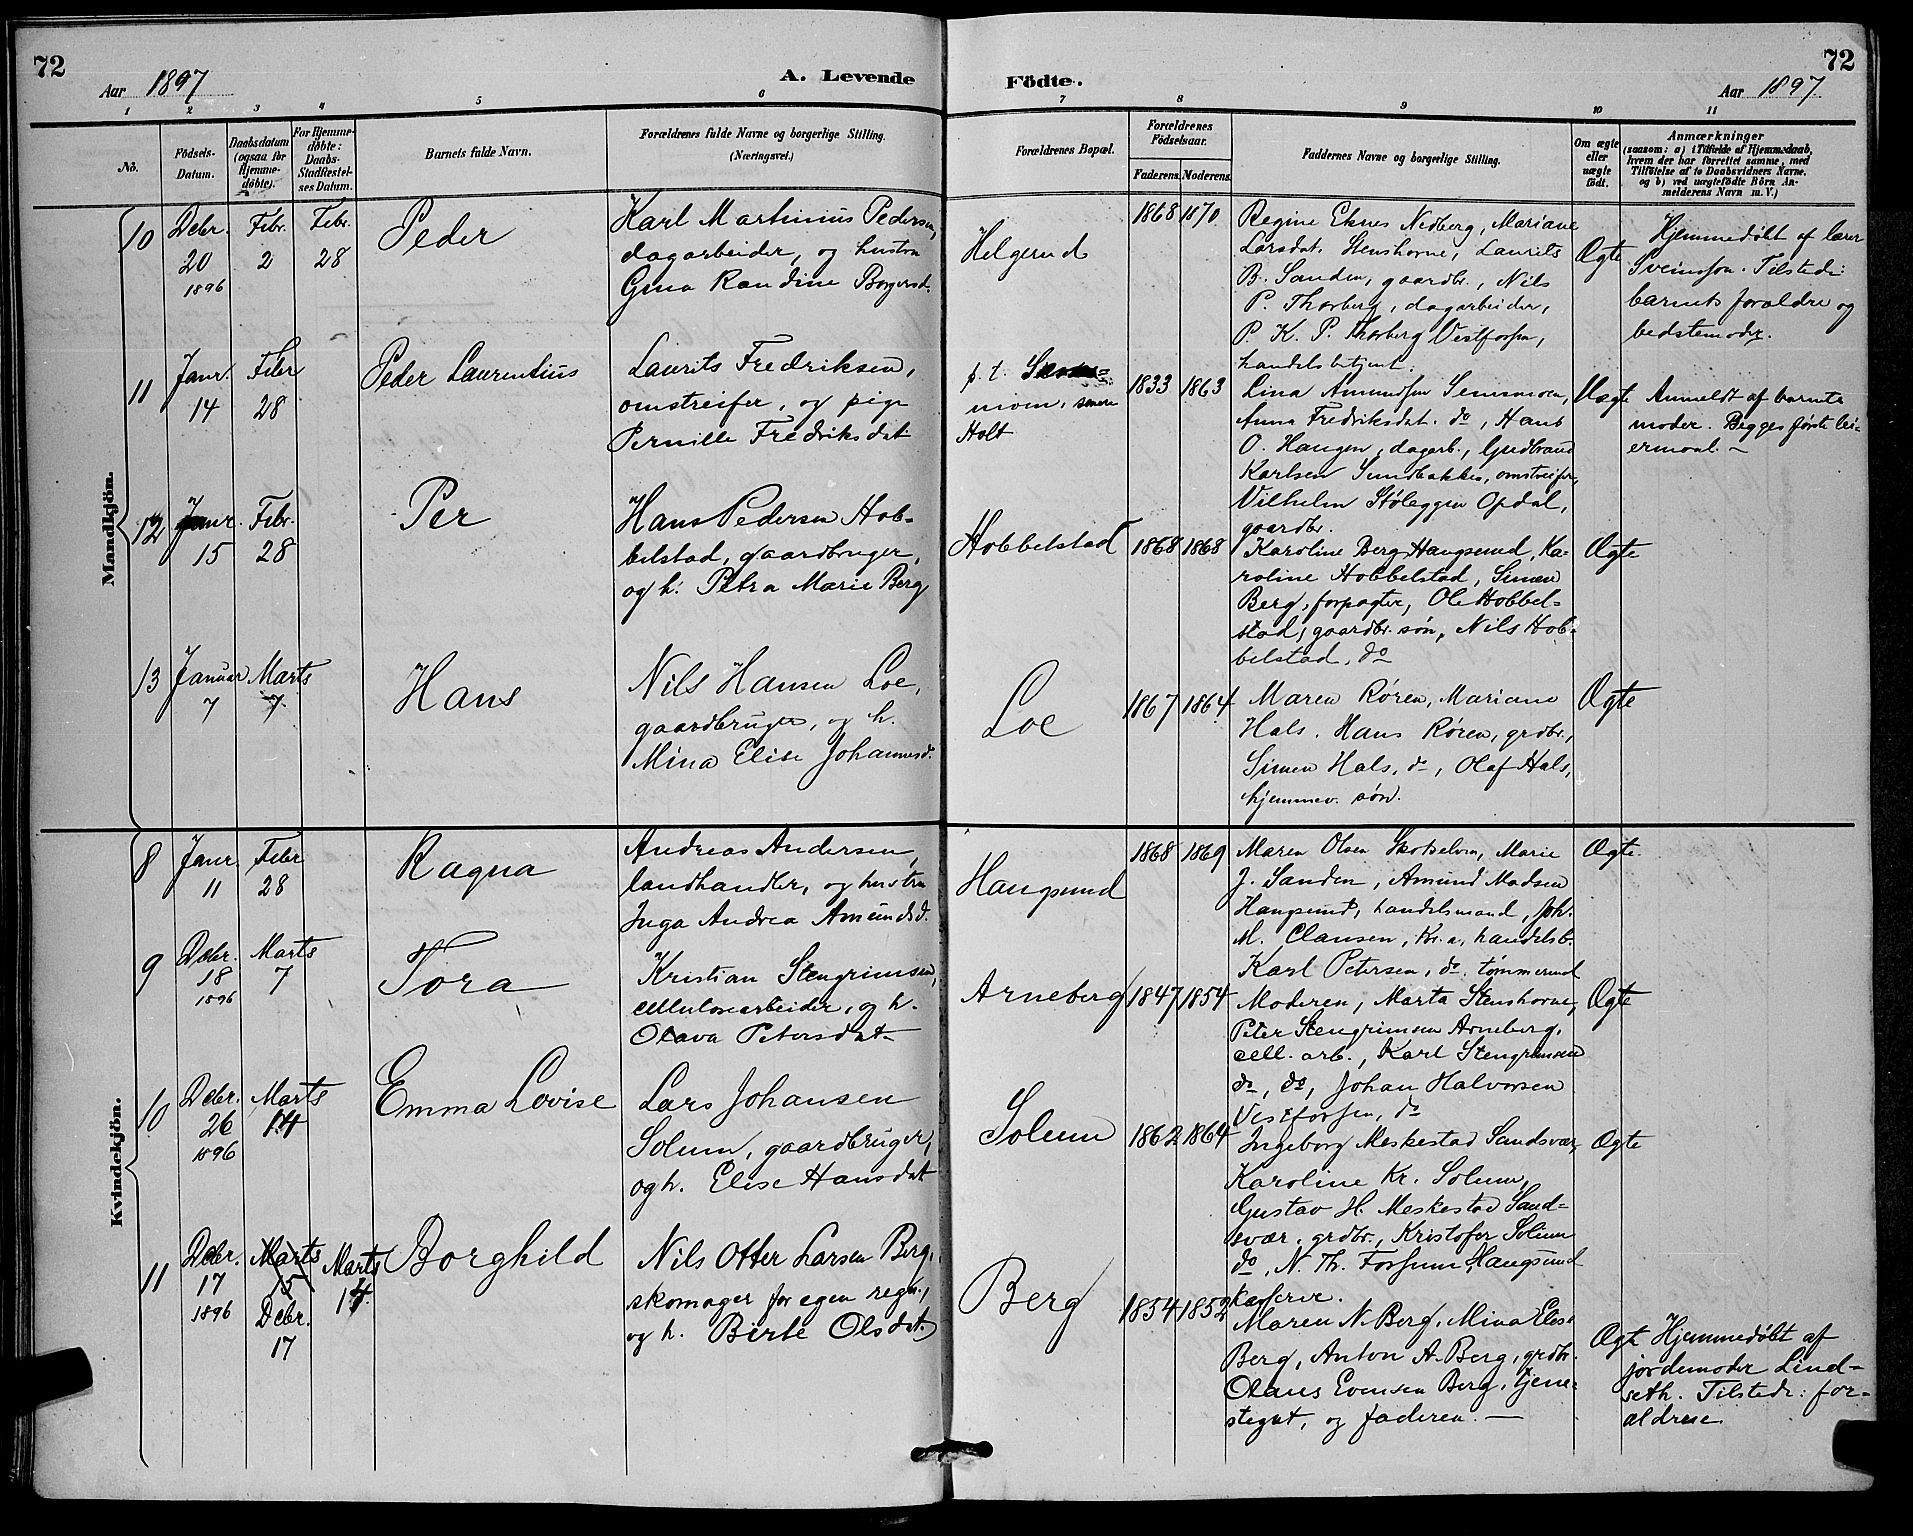 72
Aar 1897
A. Levende
Födte.
Aar 1897.
72
1 2 3 4 5 6 7 8 9 10 11
No.
Födsels-
Datum.
Daabsdatum
(ogsaa for
Hjemme-
döbte).
For Hjemme-
døbte:
Daabs-
Stadfæstel-
ses Datum.
Barnets fulde Navn.
Forældrenes fulde Navne og borgerlige Stilling.
(Næringsvei.)
Forældrenes Bopæl.
Forældrenes
Födselsaar.
Faderens. Moderens.
Faddernes Navne og borgerlige Stilling.
Om ægte
eller
uægte
födt.
Anmærkninger
(saasom: a) i Tilfælde af Hjemmedaab,
hvem der har forrettet samme, med
Tilföielse af to Daabsvidners Navne,
og b) ved uægtefödte Börn An-
melderens Navn m. V.)
Mandkjön.
10
Debr.
20
1896
Febr.
2
Febr.
28
Peder
Karl Martinius Pedersen,
dagarbeider, og hustru
Gina Randine Borgersd.
Helgerud
1868 1870
Regine Eknes Nedberg, Mariane
Larsdat. Stenshorne, Laurits
B. Sanden, gaardbr., Nils
P. Thorberg, dagarbeider,
P. K. P. Thorberg Vestfossen,
handelsbetjent.
Ægte
Hjemmedøbt af lærer
Sveinsson. Tilstede:
barnets forældre og
bedstemoder.
11
Janr.
14
Febr
28
Peder Laurentius
Laurits Fredriksen,
omstreifer, og pige
Pernille Fredriksdat
p. t.
moen, senere
Holt
1833 1863
Lina Amundsen Semsmoen,
Anna Fredriksdat. do, Hans
O. Haugen, dagarb., Gudbrand
Karlsen Sundbakken, omstreifer,
Vilhelm Støleggen Opdal,
gaardbr.
Uægte
Anmeldt af barnets
moder. Begges første lei-
ermaal. -
12
Janr.
15
Febr.
28
Per
Hans Pedersen Hob-
belstad, gaardbruger,
og h. Petra Marie Berg
Hobbelstad
1868 1868
Karoline Berg Haugsund, Ka-
roline Hobbelstad, Simen
Berg, forpagter, Ole Hobbel-
stad, gaardbr. søn, Nils Hob-
belstad, do
Ægte
13
Januar
7
Marts
7.
Hans
Nils Hansen Loe,
gaardbruger, og h.
Mina Elise Johannesd.
Loe
1867 1864
Maren Røren, Mariane
Hals, Hans Røren, grdbr.,
Simen Hals, do, Olaf Hals,
hjemmev. søn.
Ægte
Kvindekjön.
8
Janr
11
Febr
28
Ragna
Andreas Andersen,
landhandler, og hustru
Inga Andrea Amundsd.
Haugsund
1868 1869
Maren Olsen Skotselven, Marie
J. Sanden, Amund Madsen
Haugsund, handelsmand, Joh.
M. Clausen, Kr.a, handelsb.
Karl Petersen, do.
Ægte.
9
Debr.
18
1896
Marts
7
Tora
Kristian Stengrimsen,
cellulosearbeider, og h.
Olava Petersdat-
Arneberg
1847 1854
Moderen, Marta Stenshorne,
Peter Stengrimsen Arneberg,
cell. arb., Karl Stengrimsen
do, do, Johan Halvorsen
Vestfossen, do
Ægte
10
Debr.
26
1896
Marts
14
Emma Lovise
Lars Johansen
Solum, gaardbruger,
og h. Elise Hansdat
Solum
1862 1864
Ingeborg Meskestad Sandsvær,
Karoline Kr. Solum,
Gustav H. Meskestad Sand-
svær, grdbr., Kristofer Solum
do, N. Th. Forsum, Haugsund
Ægte
11
Debr.
17
1896
Marts
15
Debr.
17
Marts
14.
Borghild
Nils Otter Larsen Berg,
skomager for egen regn.,
og h. Birte Olsdat.
Berg
1854 1852
Maren N. Berg, Mina Elise
Berg, Anton A. Berg, grdbr.
Olaus Evensen Berg, tjene-
stegut, og faderen. -
Ægte
Hjemmedøbt af
jordemoder Lind-
seth. Tilstede: for-
ældrene